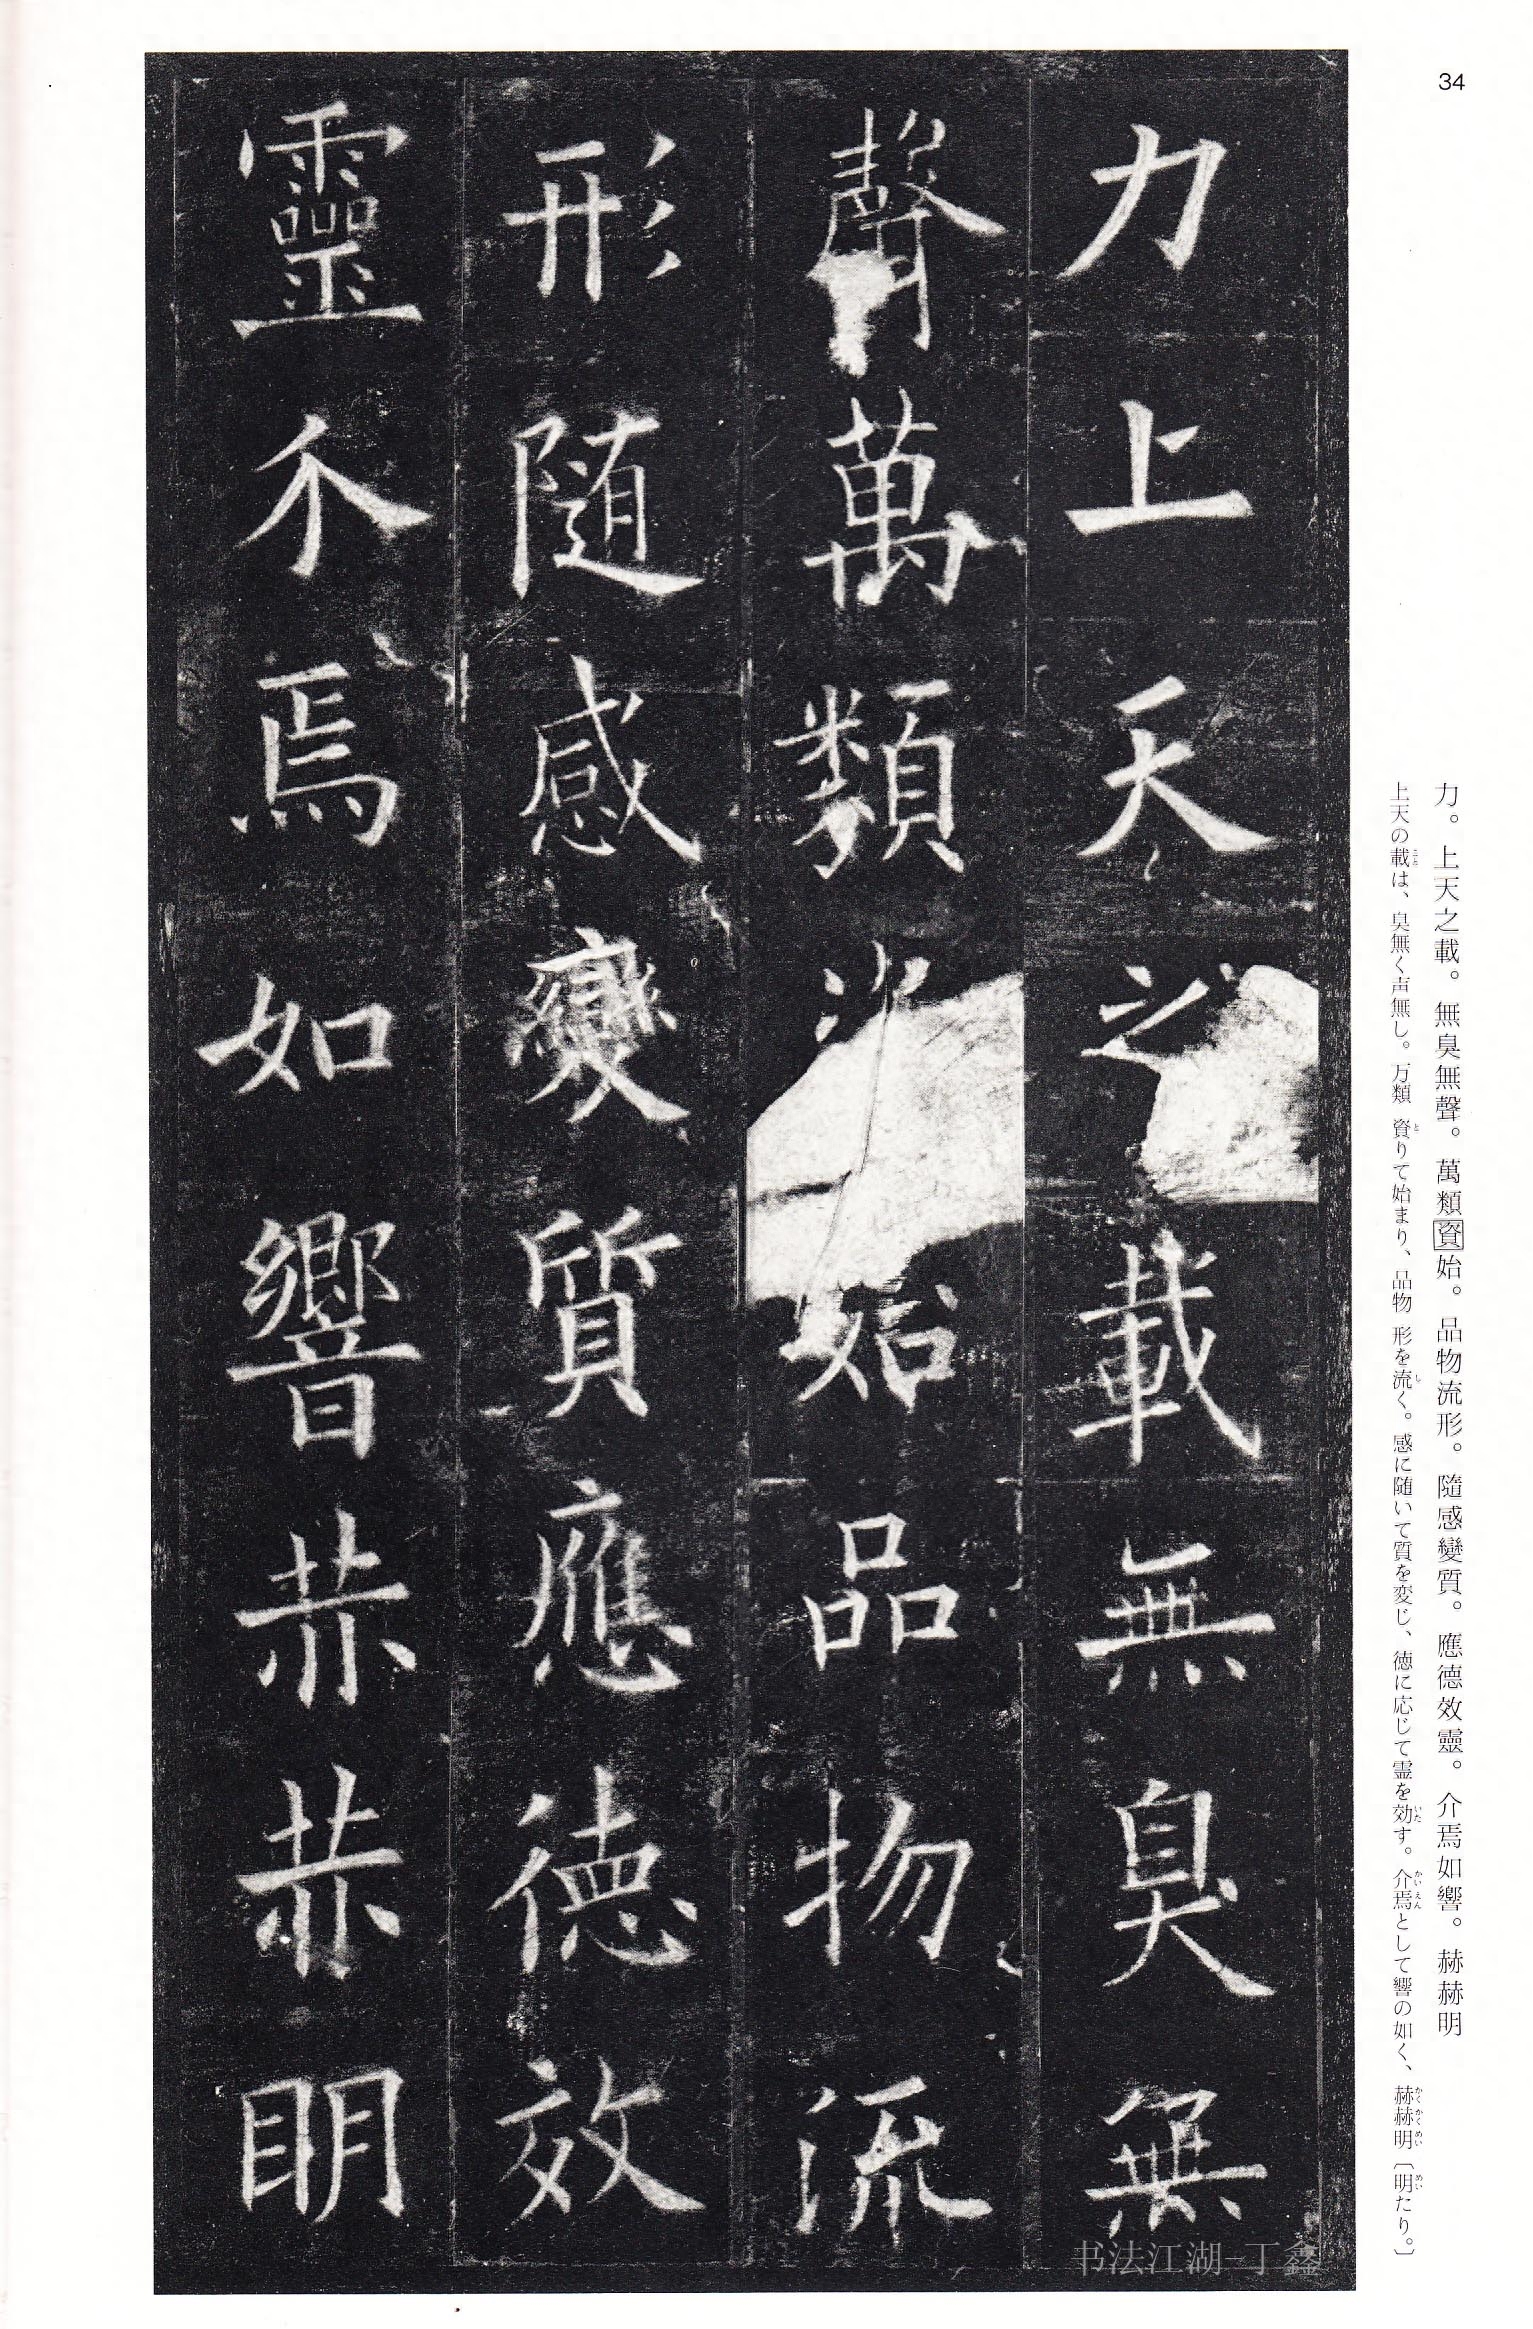 34
力。上天之載。無臭無聲。萬類資始。品物流形。隨感變質。應德效靈。介焉如響。赫赫明
上天の載は、臭無く声無し。万類 資りて始まり、品物 形を流く。感に随いて質を変じ、徳に応じて霊を効す。介焉として響の如く、赫赫明〔明たり。〕
力上天之載無臭無
聲萬類始品物流
形随感變質應德效
靈介焉如響赫赫明
书法江湖-丁鑫